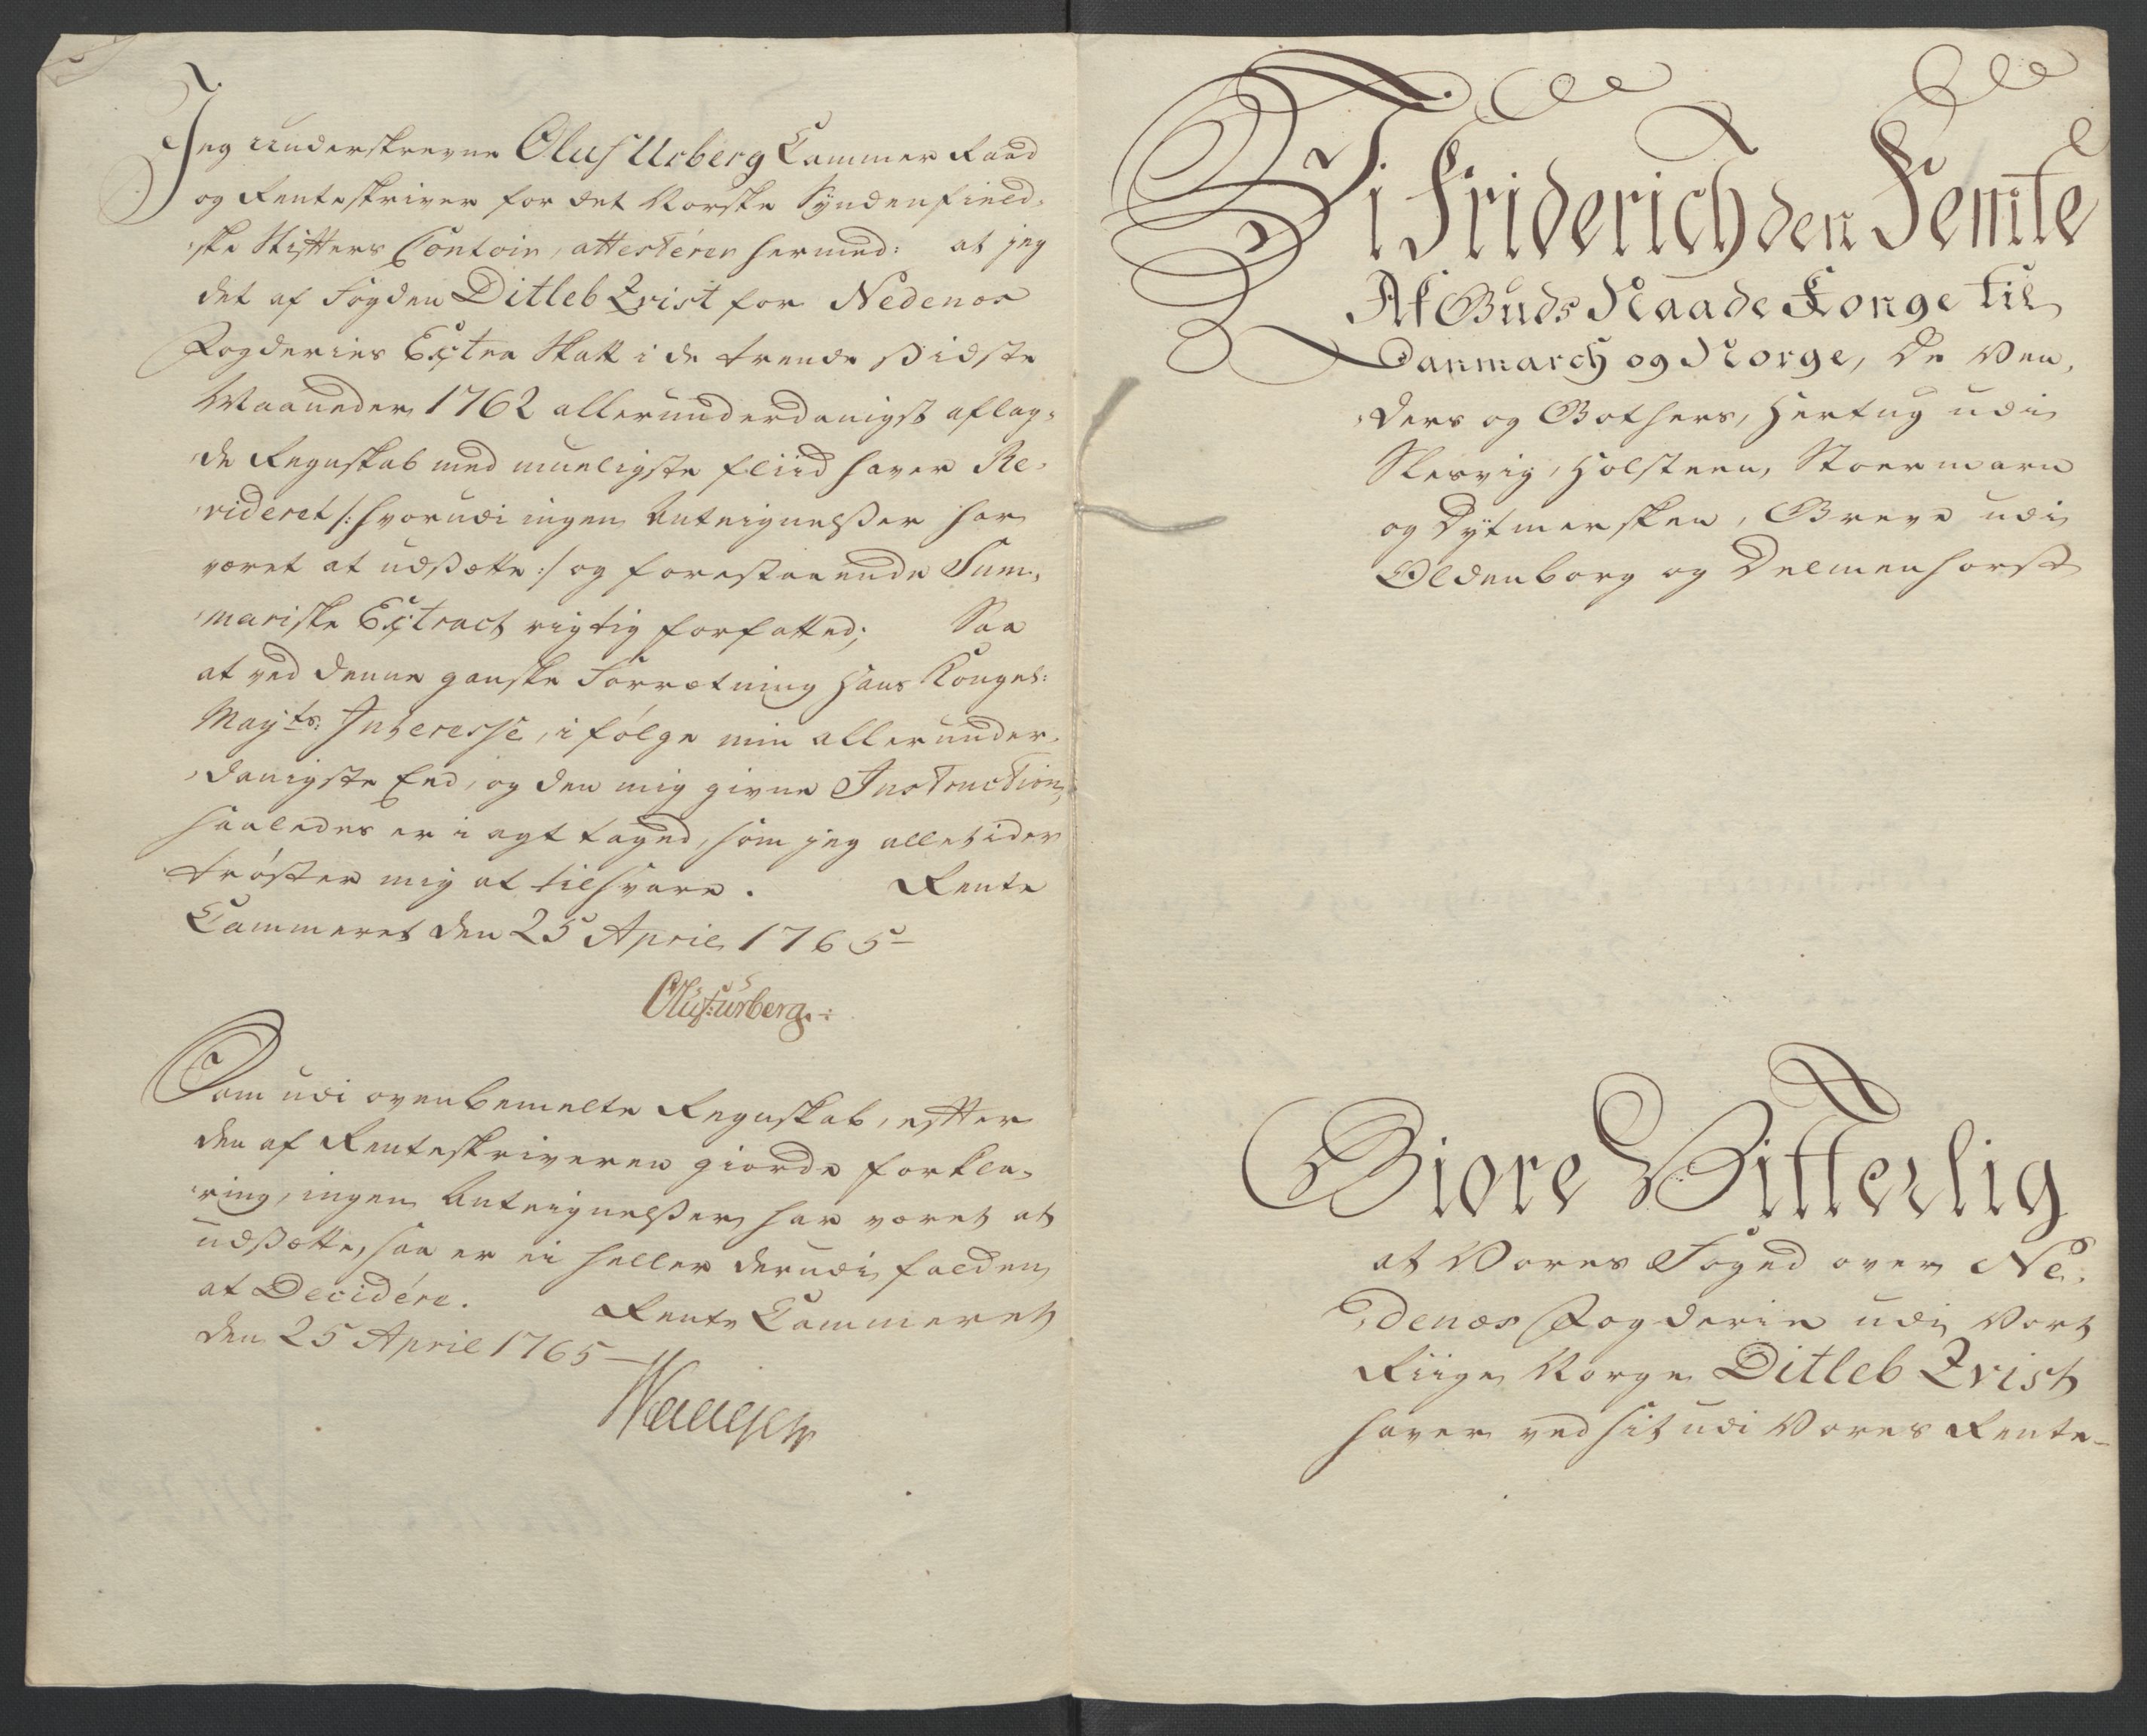 Jeg underskrevne Oluf Urberg Cammer Raad
og Renteskriver for det Norske Syndenfield-
ske Stifters Contoir, attesterer hermed: at jeg
det af Fogden Ditleb Zrist for Nedenes
Fogderies Extra Skatt i de trende sidste
Maaneder 1762 allerunderdanigst aflag-
de Regnskab med mueligste fliid haver Re-
videret /: hvorudi ingen Antegnelßer har
været at udßætte :/ og forestaaende Sum-
mariske Extract rigtig forfatted; Saa
at ved denne ganske Forretning Hans Kongel:
Mayts: Interesse, i følge min allerunder-
danigste Eed, og den mig givne Instruction,
saaledes er i agt taged, som jeg alletider
trøster mig at tilsvare. Rente
Cammeret den 25 April 1765
Oluf Urberg
Som udi ovenbemelte Regnskab, efter
den af Renteskriveren giorde forkla-
ring, ingen Antegnelßer har været at
udßætte, saa er ei heller derudi falden
at Decidére. Rente Cammeret
den 25 April 1765
Vi Friderich den Femte
Af Guds Naade Konge til
Danmarch og Norge, De Ven-
ders og Gothers, Hertug udi
Slesvig, Holsteen, Stoermarn
og Dytmersken, Greve udi
Oldenborg og Delmenhorst
Giøre Vitterlig
at Vores Foged over Ne-
denes Fogderie udi Vort
Riige Norge Ditleb Zrist
haver ved sit udi Vores Rente-